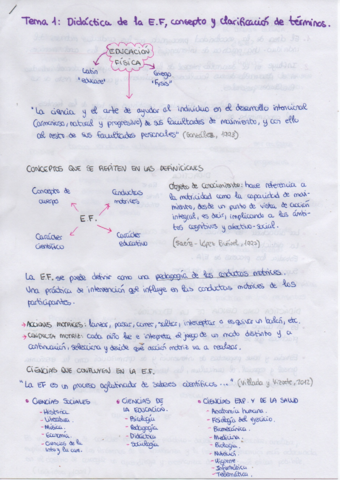 Tema 1: Didáctica de la E.F, concepto y clarificación de términos.
EDUCACIÓN
FÍSICA
Latín Griego
"educare" "Fysis"
"La ciencia y el arte de ayudar al individuo en el desarrollo intencional
(armonioso, natural y progresivo) de sus facultades de movimiento, y con ello
el resto de sus facultades personales"
CONCEPTOS QUE SE REPITEN EN LAS DEFINICIONES
Concepto de cuerpo
Conductas motrices
E.F.
Carácter científico
Carácter educativo
Objeto de conocimiento: hace referencia a
la motricidad como la capacidad de movi-
miento, desde un punto de vista de acción
integral, es decir, implicando a los ámbi-
tos cognitivos y afectivo-social.
La E.F. se puede definir como una pedagogía de las conductas motrices.
Una práctica de intervención que influye en las conductas motrices de los
participantes.
→ ACCIONES MOTRICES: lanzar, pasar, correr, saltar, interceptar o esquivar un balón, etc.
→ CONDUCTA MOTRIZ: cada niño lee e interpreta el juego de un modo distinto y a
continuación, selecciona y decide qué acción motriz va a realizar.
CIENCIAS QUE CONFLUYEN EN LA E.F.
"La EF es un proceso aglutinador de saberes científicos ..." (Villada y Vizuete, 2002)
CIENCIAS SOCIALES
- Historia
- Literatura
- Música
- Economía
- Ciencias de la
CIENCIAS DE
LA EDUCACIÓN.
- Psicología
- Pedagogía
- Didáctica
- Sociología
CIENCIAS EXP. Y DE LA SALUD
- Anatomía humana.
- Fisiología del ejercicio.
- Biomecánica
- Medicina
- Biología
- Higiene
- Informática